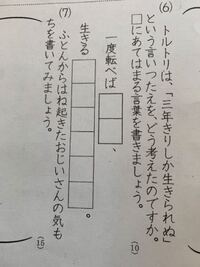 (6)
トルトリは、「三年きりしか生きられぬ」
という言いつたえを、どう考えたのですか。
□にあてはまる言葉を書きましょう。
(10)
一度転べば□□、
生きる□□□□□□。
(7)
ふとんからはね起きたおじいさんの気も
ちを書いてみましょう。
(15)